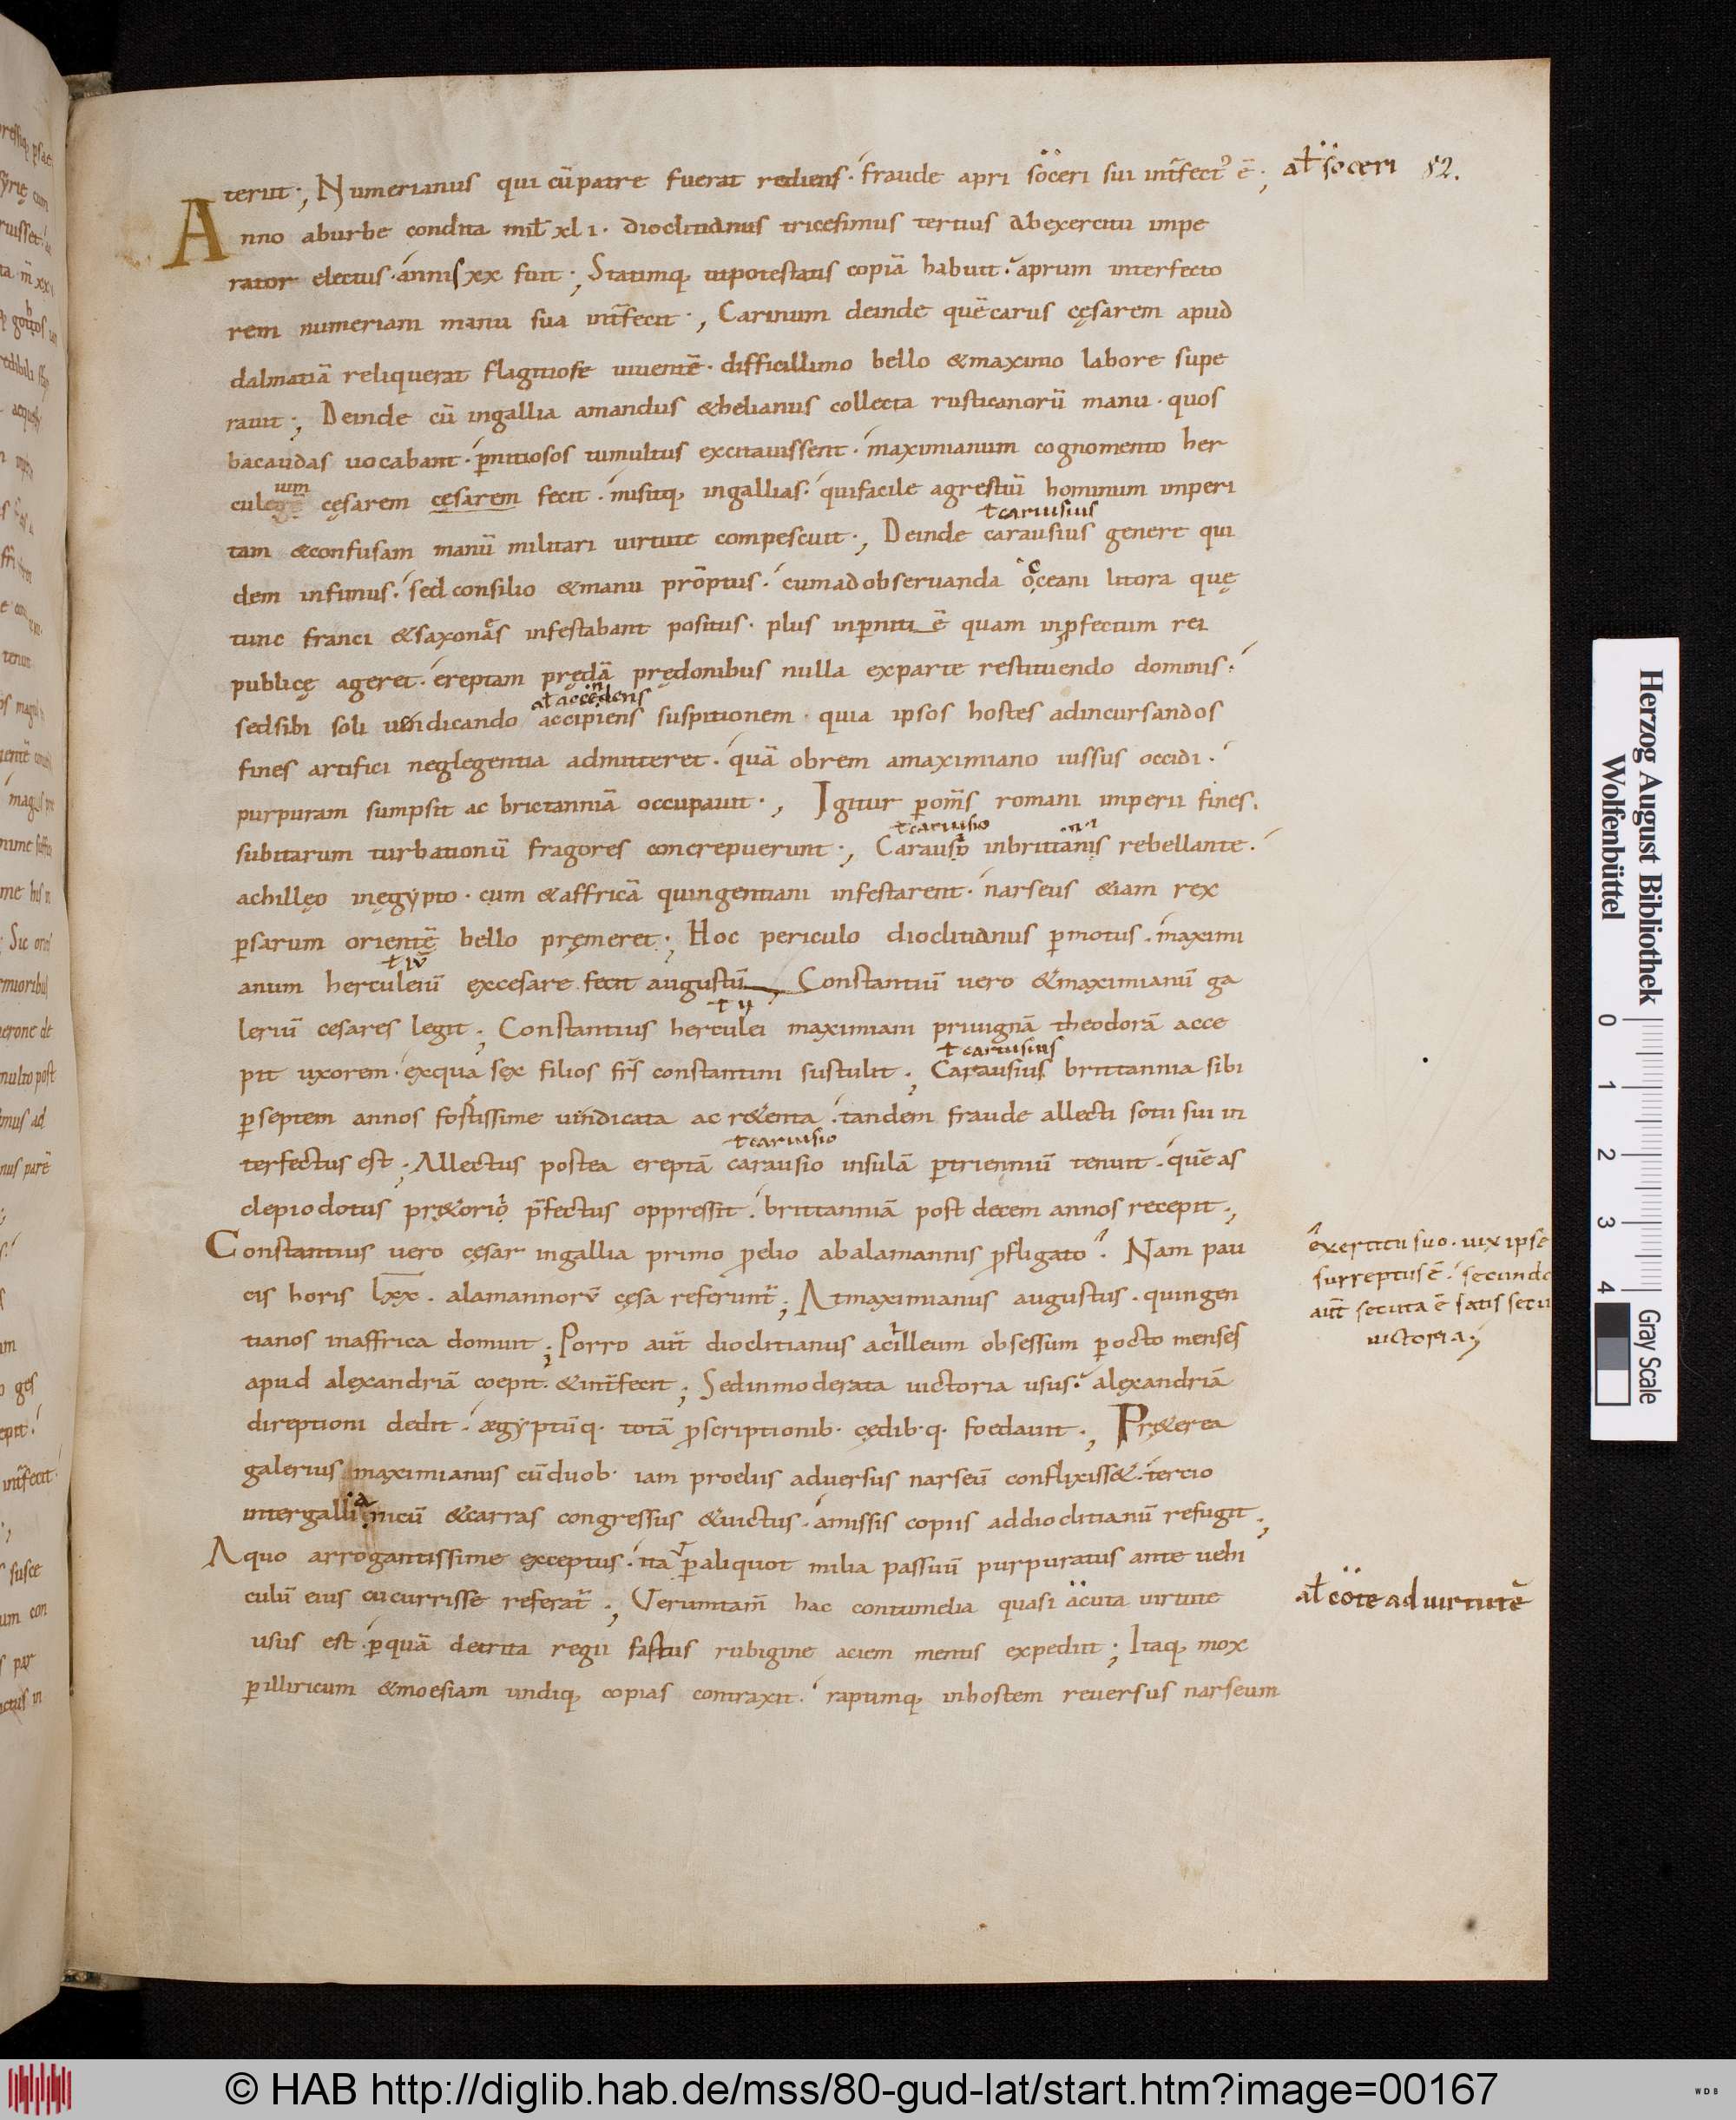 terut; Numerianus qui cū patre fuerat rediens. fraude apri söceri sui int̄fect᾽ ē; al̄ söceri 82.
Anno aburbe condita mil̄ xl i. dioclitianus tricesimus tertius abexercitu impe
rator electus. annis xx fuit; Statimq; ut potestatis copiā habuit. aprum interfecto
rem numeriani manu sua int̄fecit; Carinum deinde quē carus cęsarem apud
dalmatiā reliquerat flagitiose uiuentē. difficillimo bello &maximo labore supe
rauit; Deinde cū ingallia amandus &helianus collecta rusticanorū manu. quos
bacaudas uocabant. ꝑnitiosos tumultus excitauissent. maximianum cognomento her
culeū cęsarem cęsarem fecit. misitq; ingallias. qui facile agrestiū hominum imperi
uim
tam &confusam manū militari uirtute compescuit; Deinde carausius genere qui
ł cariusius
dem infimus. sed consilio &manu prōptus. cumadobseruanda oceani litora quę
tunc franci &saxones infestabant positus. plus inꝑniti ē quam inꝓfectum rei
publicę ageret. ereptam prędā prędonibus nulla exparte restituendo dominis.
al̄ accendens
sedsibi soli uindicando accipiens suspitionem. quia ipsos hostes adincursandos
fines artifici neglegentia admitteret. quā obrem amaximiano iussus occidi.
purpuram sumpsit ac brictanniā occupauit; Igitur ꝑ om̄s romani imperii fines.
ł cariusio
subitarum turbationū fragores concrepuerunt; Carausio inbrittanis rebellante.
achillęo inęgypto. cum &affricā quingentiani infestarent. narseus &iam rex
ꝑsarum orientē bello pręmeret; Hoc periculo dioclitianus ꝑmotus. maximi
ł iv̄
anum herculeiū excesare fecit augustū; Constantiū uero &maximianū ga
ł ii
leriū cesares legit; Constantius herculei maximiani priuignā theodorā acce
ł cariusius
pit uxorem. exqua sex filios fr̄s constantini sustulit; Carausius brittannia sibi
ꝑseptem annos fostissime uindicata ac r&enta. tandem fraude allecti sotii sui in
ł cariusio
terfectus est; Allectus postea ereptā carausio insulā ꝑtrienniū tenuit. quē as
clepiodotus pr&orio p̄fectus oppressit. brittanniā post decem annos recepit;
Constantius uero cęsar ingallia primo ꝓelio abalamannis ꝓfligato. Nam pau
exercitu suo. uix ipse
surreptus ē. secundo
aut̄ secuta ē satis secu
uictoria;
cis horis lxx. alamannorū cęsa referunt̄; At maximianus augustus. quingen
tianos inaffrica domuit; Porro aut̄ dioclitianus acilleum obsessum ꝑ octo menses
apud alexandriā coepit. &int̄fecit; Sedinmoderata uictoria usus. alexandriā
direptioni dedit. ægyptūq. totā ꝓscriptionib. cędib.q. foedauit; Pr&erea
galerius maximianus cū duob. iam proeliis aduersus narseū conflixiss&. tercio
intergallianicū &carras congressus &uictus. amissis copiis addioclitianū refugit;
Aquo arrogantissime exceptus. ita ꝑ aliquot milia passuū purpuratus ante uehi
culū eius cucurrisse referat̄; Verumtam̄ hac contumelia quasi äcuta uirtute
al̄ cöte ad uirtutē
usus est. ꝑ quā detrita regii fastus rubigine aciem mentis expediit; Itaq; mox
ꝑ illiricum &moesiam undiq; copias contraxit. raptimq; inhostem reuersus narseum
Herzog August Bibliothek
Wolfenbüttel
0 1 2 3 4 Gray Scale
© HAB http://diglib.hab.de/mss/80-gud-lat/start.htm?image=00167
W D B